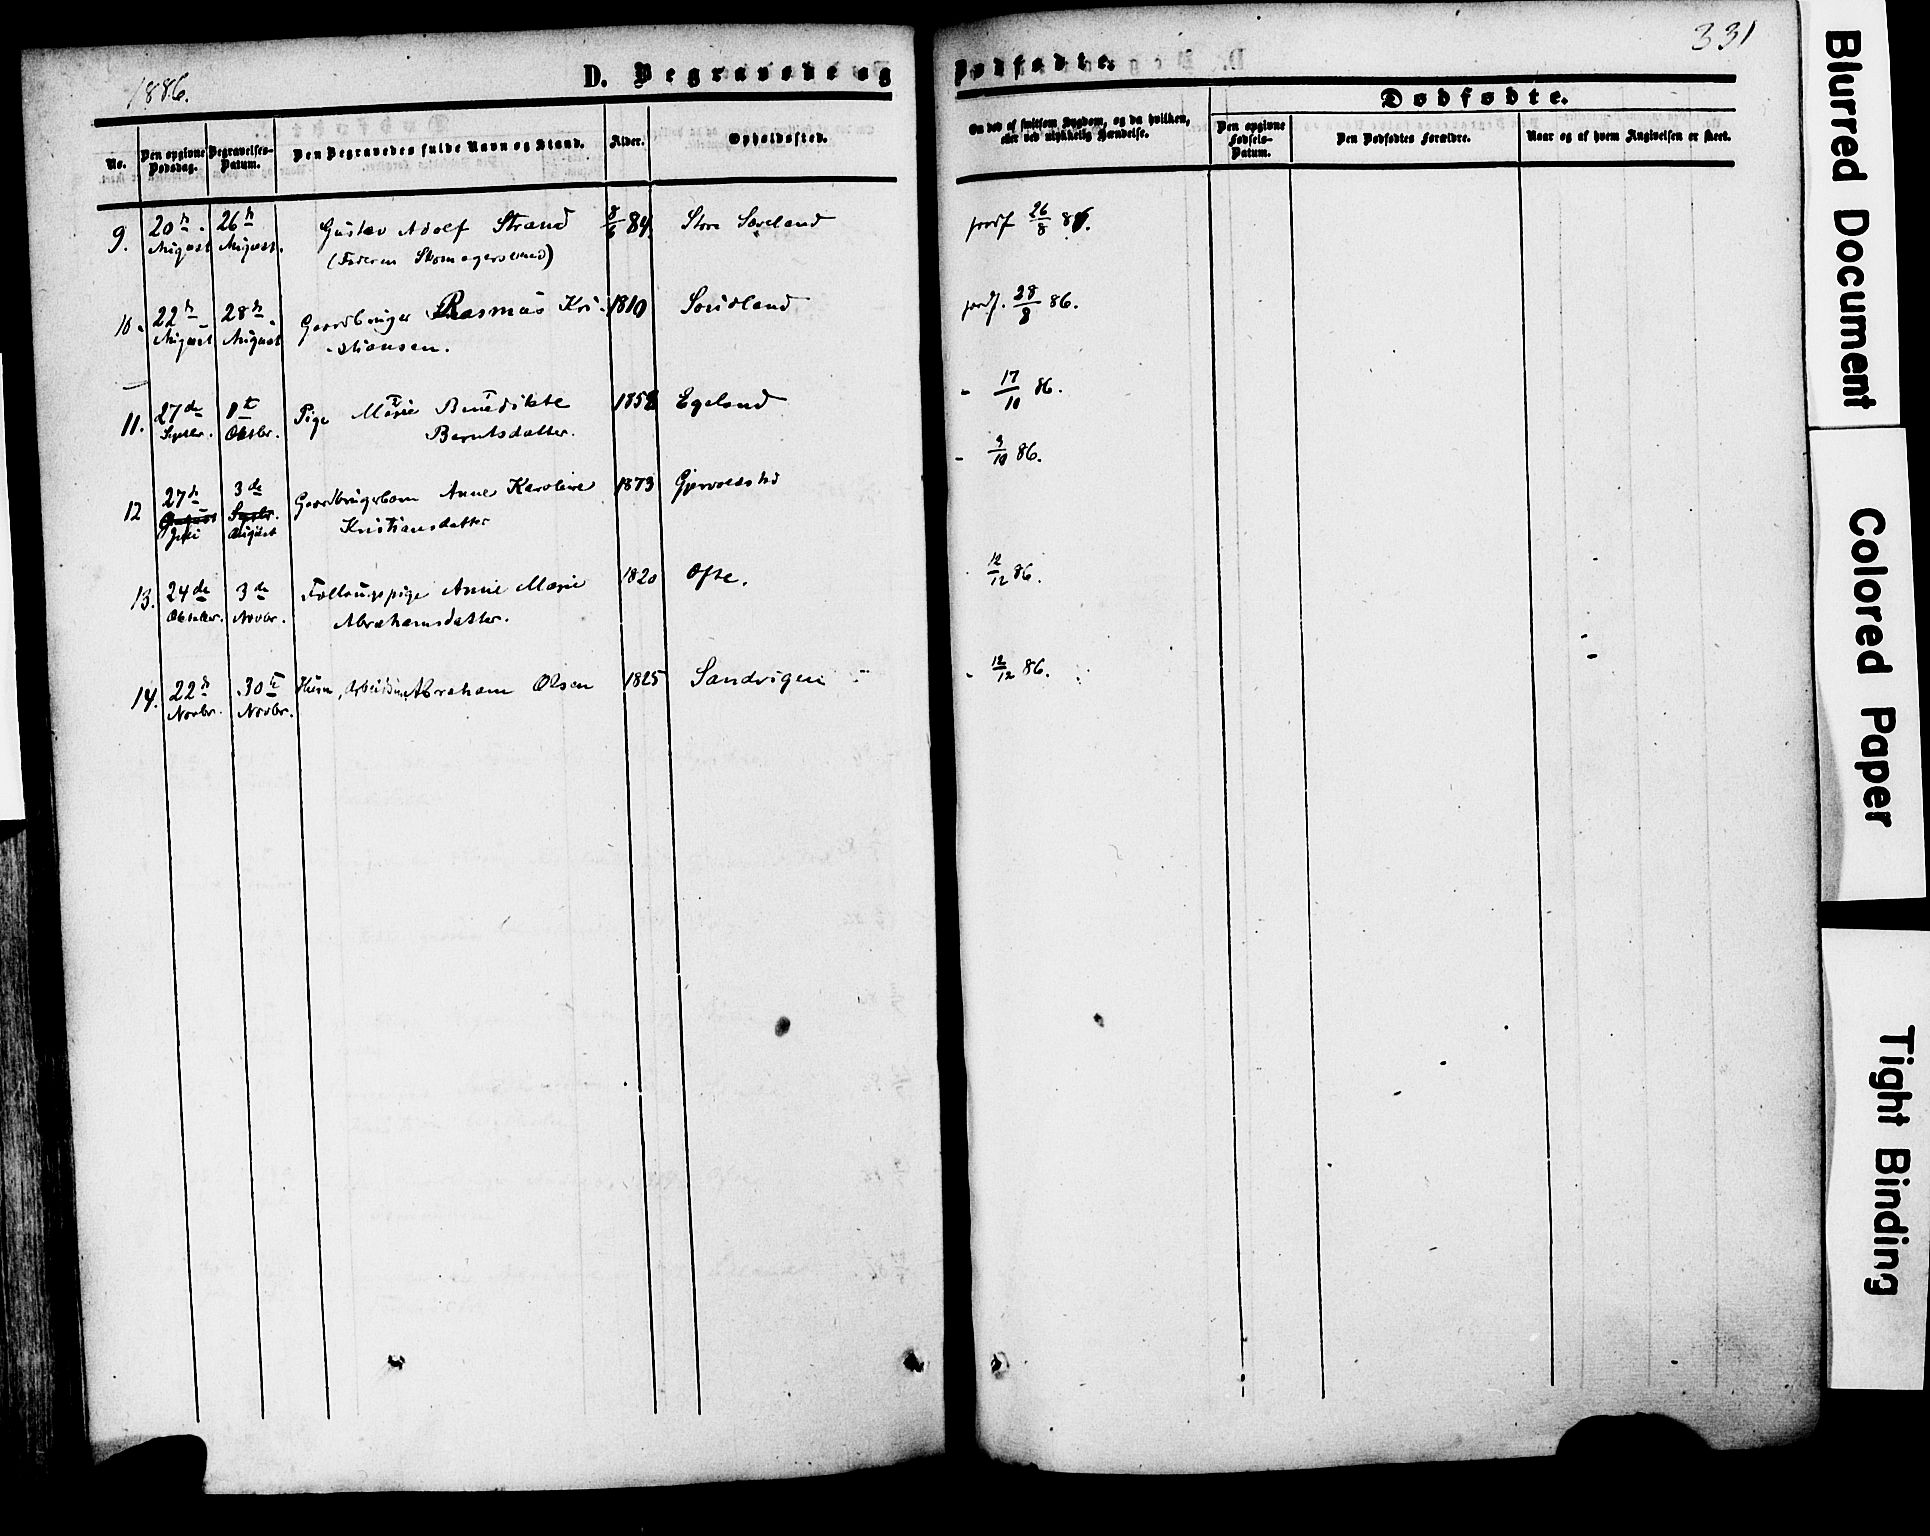 1886.
331
D. Begravede og Dødfødte.
No.
Den opgivne Dødsdag.
Begravelses-Datum.
Den Begravedes fulde Navn og Stand.
Alder.
Opholdssted.
Om død af smitsom Sygdom, og da hvilken, eller ved ulykkelig Hændelse.
Dødfødte.
Den opgivne Fødsels-Datum.
Den Dødfødtes Forældre.
Naar og af hvem Angivelsen er skeet.
9. 20de August 26de August. Gustav Adolf Strand 8/6 84. Store
(Faderen Skomagersvend)
26/8 86.
10. 22de August 28de August Gaardbruger Rasmus Kri-
stiansen.
1810
28/8 86.
11. 27de Septbr. Oktbr. Pige Marie Benedikte
Berntsdatter.
1858 Egeland
- 17/10 86.
12 27de Juli 3de August Gaardbrugerbarn Anne Karoline
Kristiansdatter
1873
- 9/10 86.
13. 24de Oktober. 3de Novbr. Anne Marie
Abrahamsdatter.
1820 Ofte.
12/12 86.
14. 22de Novbr. 30te Novbr. Abraham Olsen 1825 Sandvigen
- 12/12 86.
Blurred Document
Colored Paper
Tight Binding